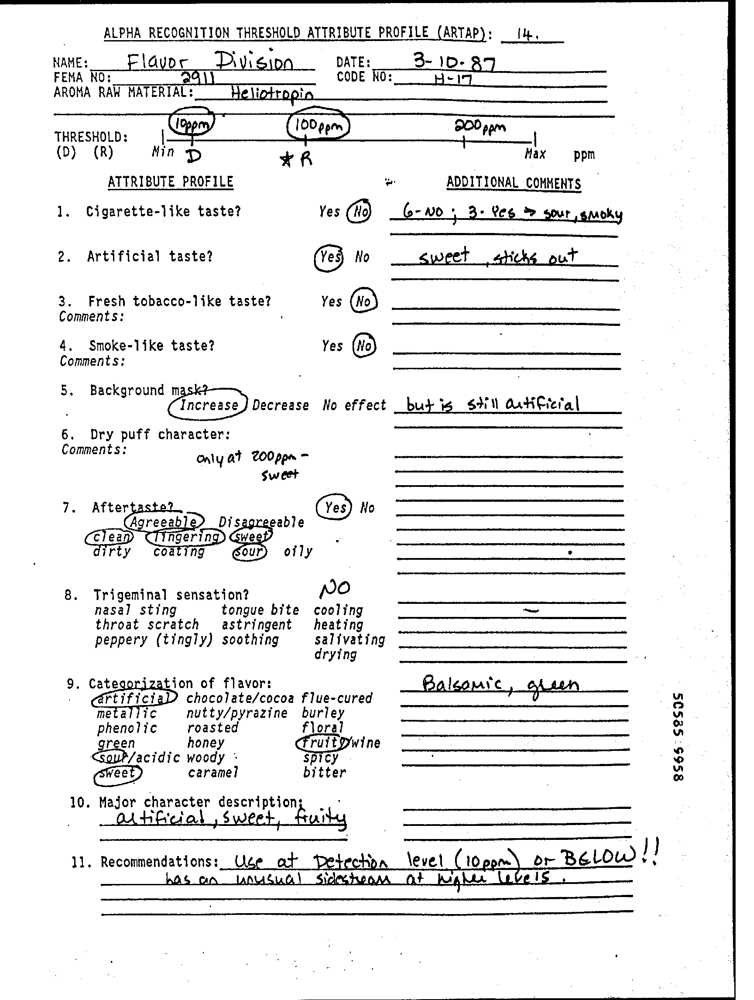 ALPHA RECOGNITION THRESHOLD ATTRIBUTE PROFILE (ARTAP): 14.
NAME: Flavor Division DATE: 3-10-87
FEMA NO: 2911 CODE NO: H-17
AROMA RAW MATERIAL: Heliotropin
10ppm 100ppm 200ppm
THRESHOLD:
(D) (R) Min D * R Max ppm
ATTRIBUTE PROFILE ADDITIONAL COMMENTS
1. Cigarette-like taste? Yes No 6-NO ; 3-Yes → sour, smoky
2. Artificial taste? Yes No sweet, sticks out
3. Fresh tobacco-like taste? Yes No
Comments:
4. Smoke-like taste? Yes No
Comments:
5. Background mask?
Increase Decrease No effect but is still artificial
6. Dry puff character:
Comments: only at 200ppm -
sweet
7. Aftertaste? Yes No
Agreeable Disagreeable
clean lingering sweet
dirty coating sour oily
8. Trigeminal sensation? NO
nasal sting tongue bite cooling –
throat scratch astringent heating
peppery (tingly) soothing salivating
drying
9. Categorization of flavor: Balsamic, green
artificial chocolate/cocoa flue-cured
metallic nutty/pyrazine burley
phenolic roasted floral
green honey fruity/wine
sour/acidic woody spicy
sweet caramel bitter
10. Major character description:
artificial, sweet, fruity
11. Recommendations: Use at Detection level (10ppm) or BELOW!!
has an unusual sidestream at higher levels.
50585 9958